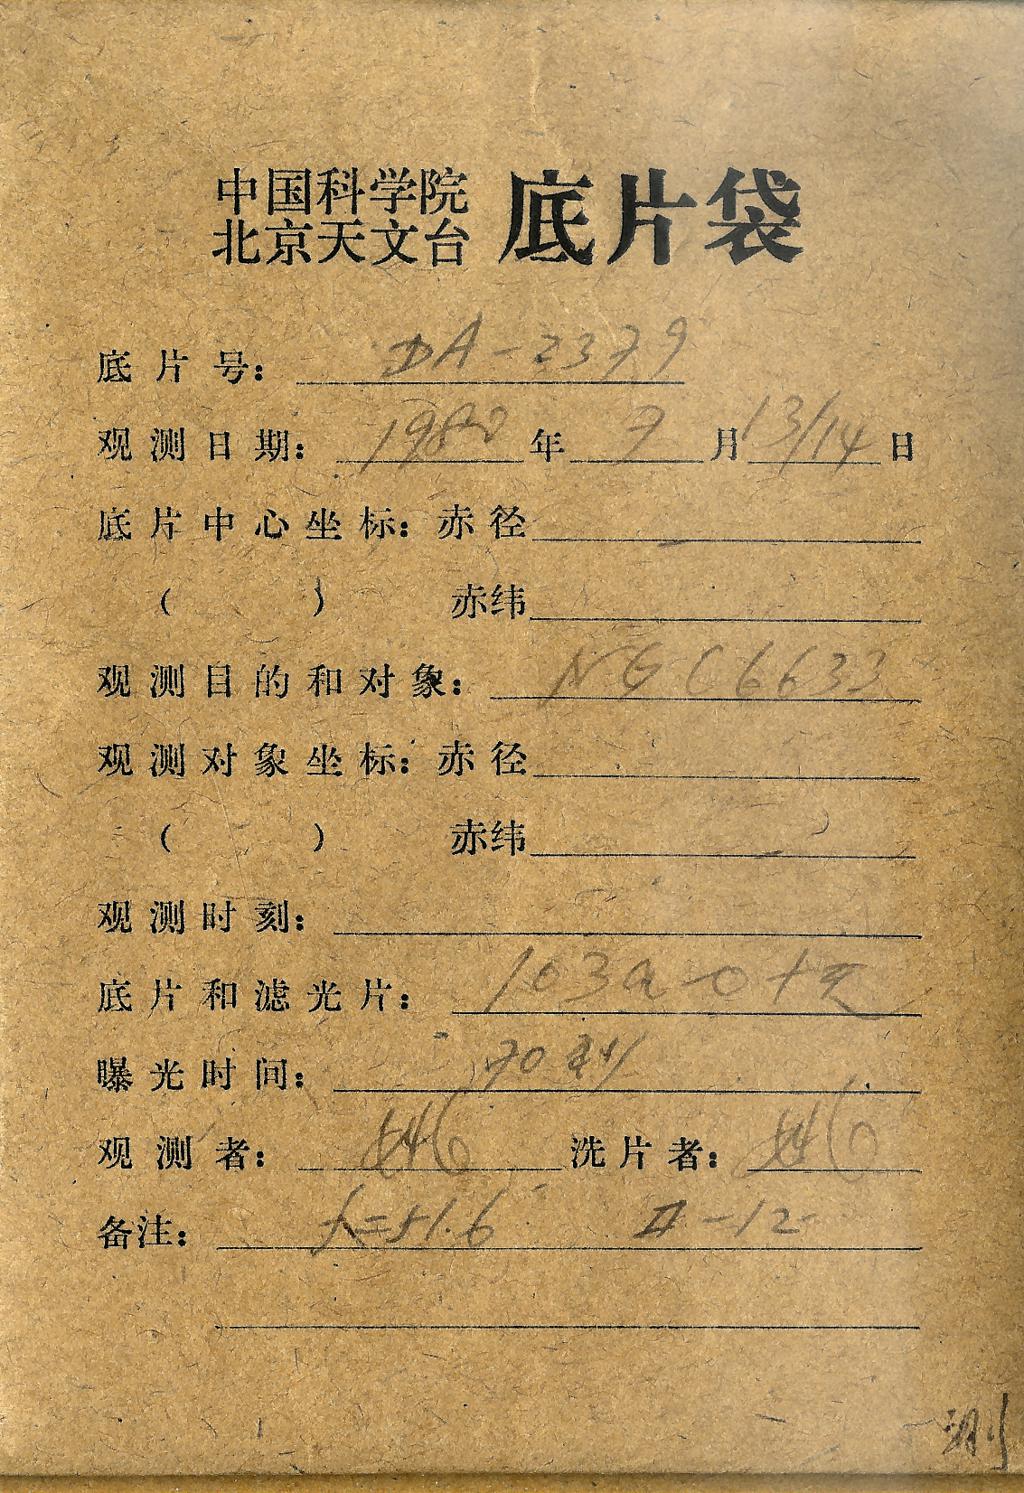 中国科学院
北京天文台 底片袋
底片号: DA-2379
观测日期: 1980年 9月13/14日
底片中心坐标: 赤径
( ) 赤纬
观测目的和对象: NGC6633
观测对象坐标: 赤径
( ) 赤纬
观测时刻:
底片和滤光片: 103a-O+
曝光时间:
观测者: 洗片者:
备注: f=51.6 II-12